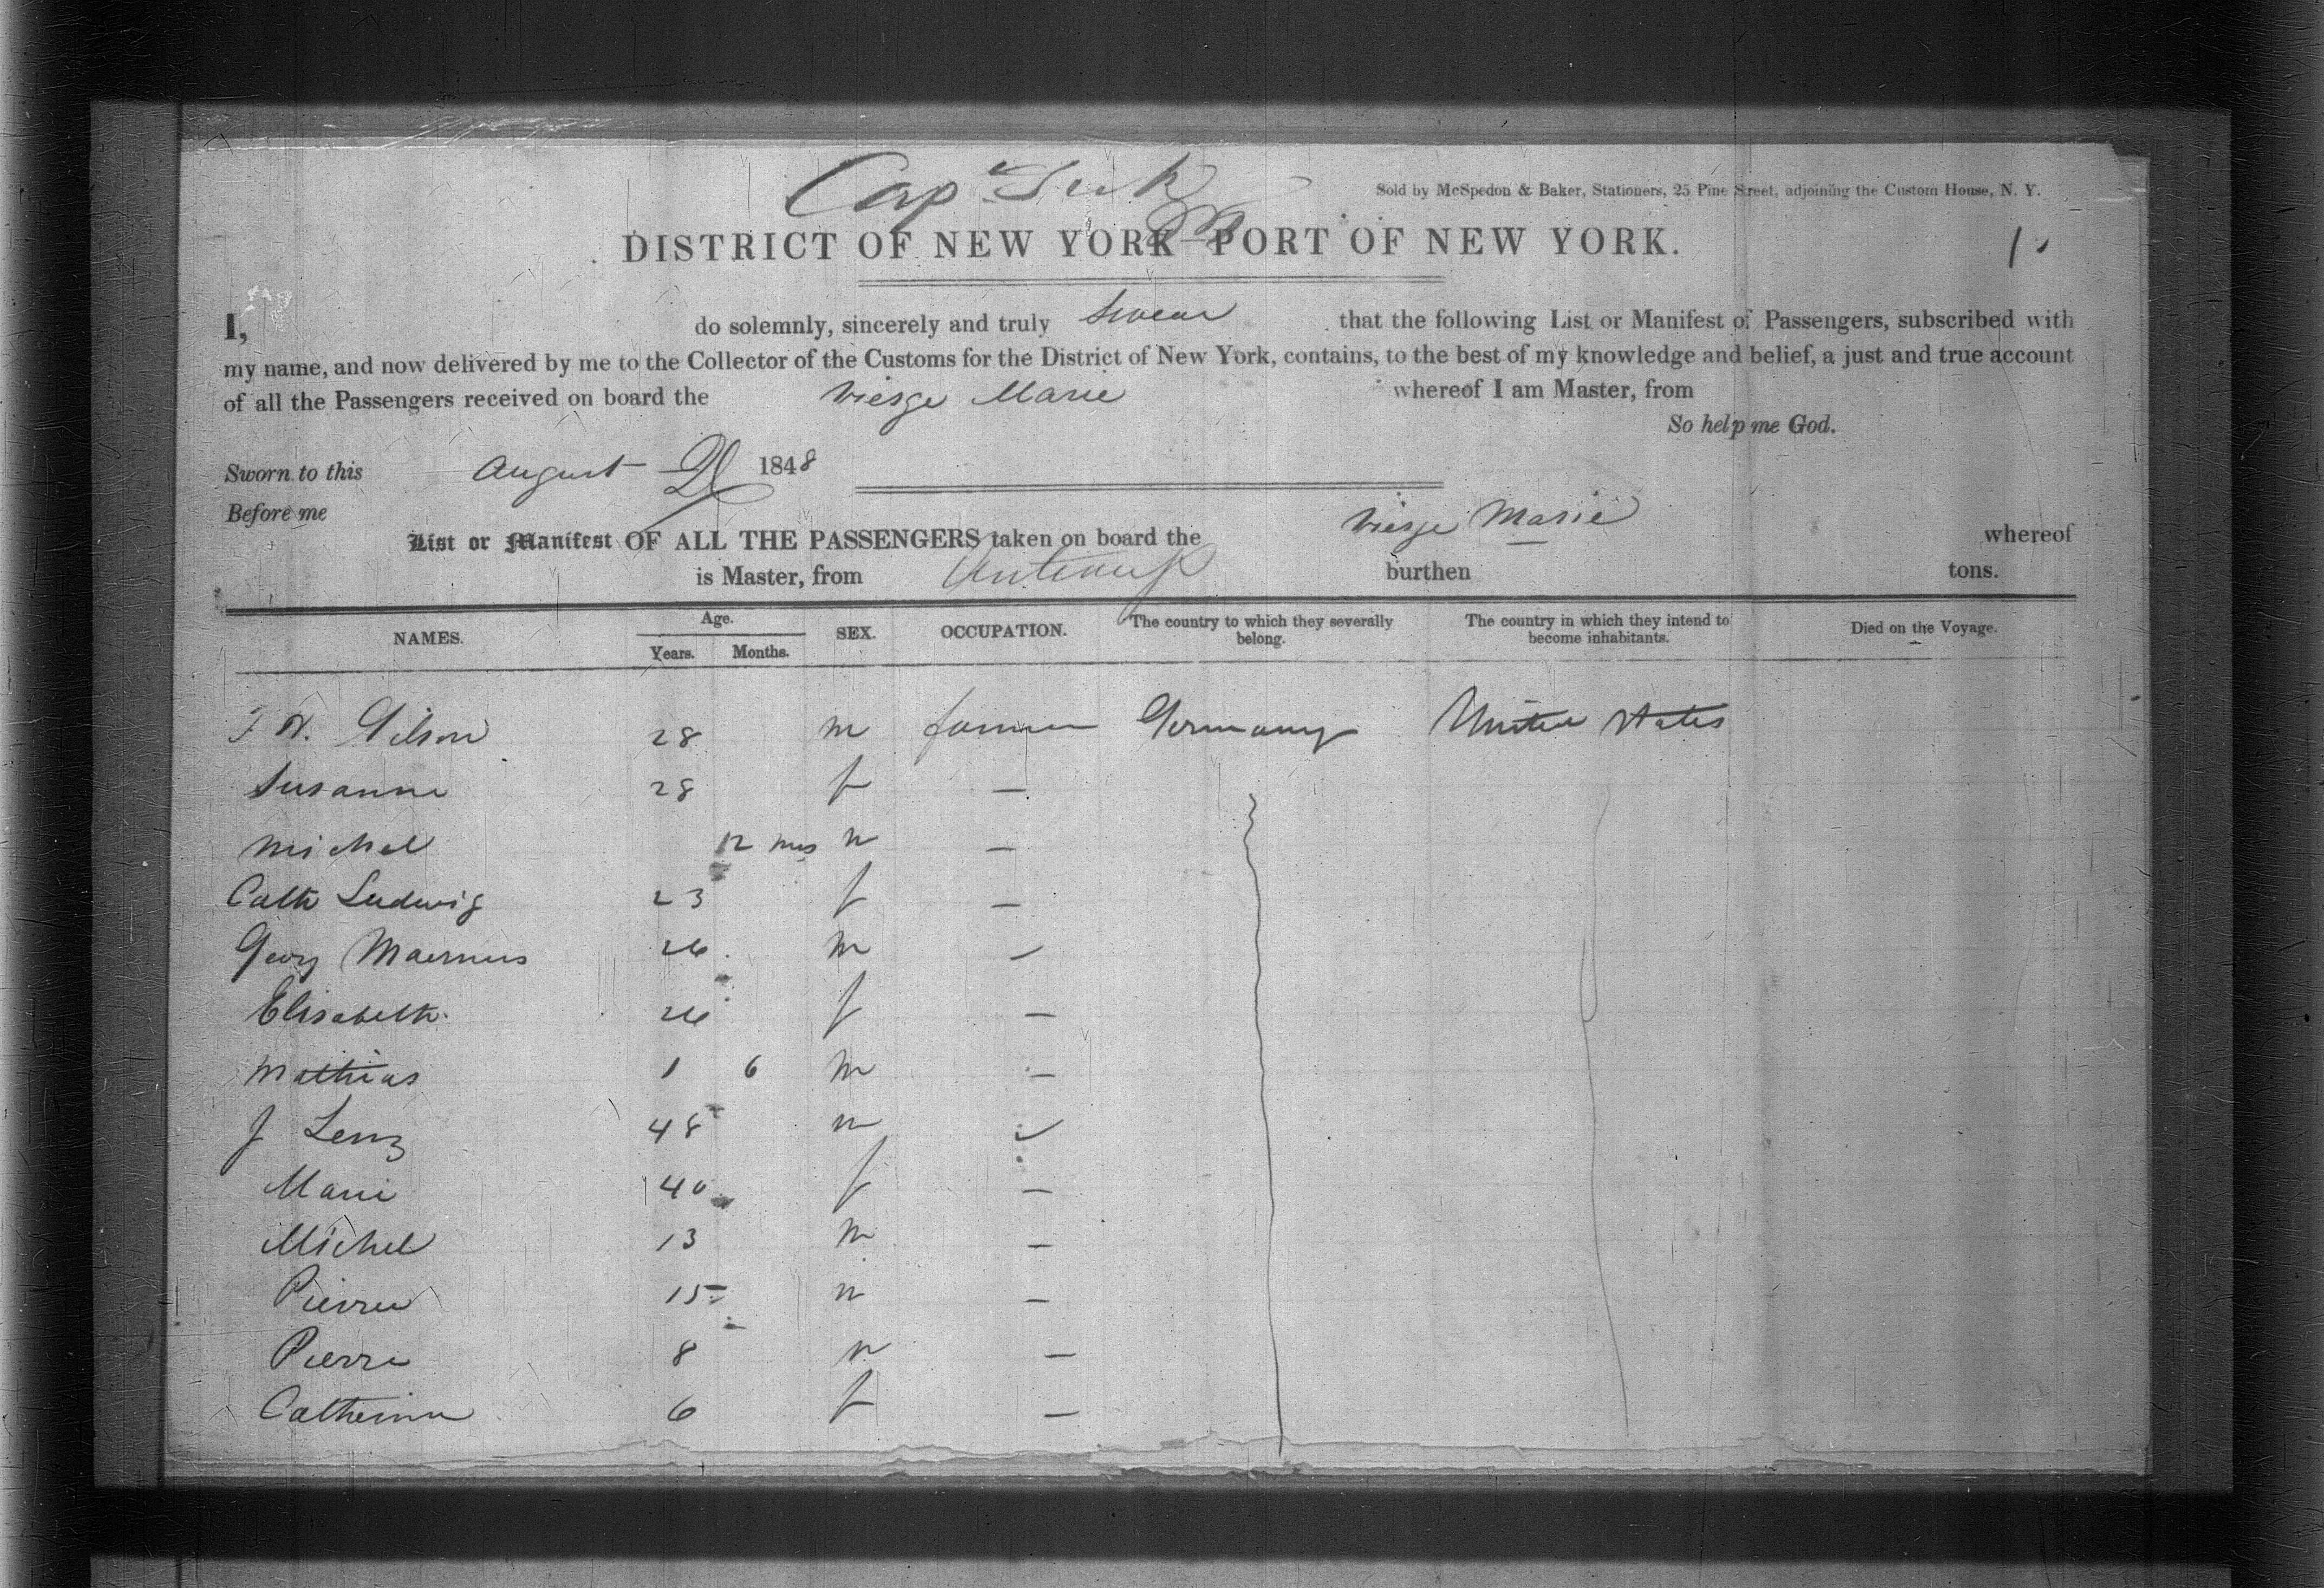 Cap
Sold by McSpedon & Baker, Stationers, 25 Pine Street, adjoining the Custom House, N. Y.
DISTRICT OF NEW YORK—PORT OF NEW YORK.
1.
I, do solemnly, sincerely and truly Swear that the following List or Manifest of Passengers, subscribed with
my name, and now delivered by me to the Collector of the Customs for the District of New York, contains, to the best of my knowledge and belief, a just and true account
of all the Passengers received on board the Vierge Marie whereof I am Master, from
So help me God.
Sworn to this August 1848
Before me
List or Manifest OF ALL THE PASSENGERS taken on board the Vierge Marie whereof
is Master, from Antwerp burthen tons.
NAMES. Age. SEX. OCCUPATION. The country to which they severally belong. The country in which they intend to become inhabitants. Died on the Voyage.
Years. Months.
Gilson 28 m farmer Germany United States
Susanne 28 f —
Michel 12 mos m —
Cath Ludwig 23 f —
Georg 26 m —
Elisabeth 26 f —
Mathias 1 6 m —
J Lenz 48 m
Marie 40 f —
Michel 13 m —
Pierre 15 m —
Pierre 8 m —
Catherine 6 f —